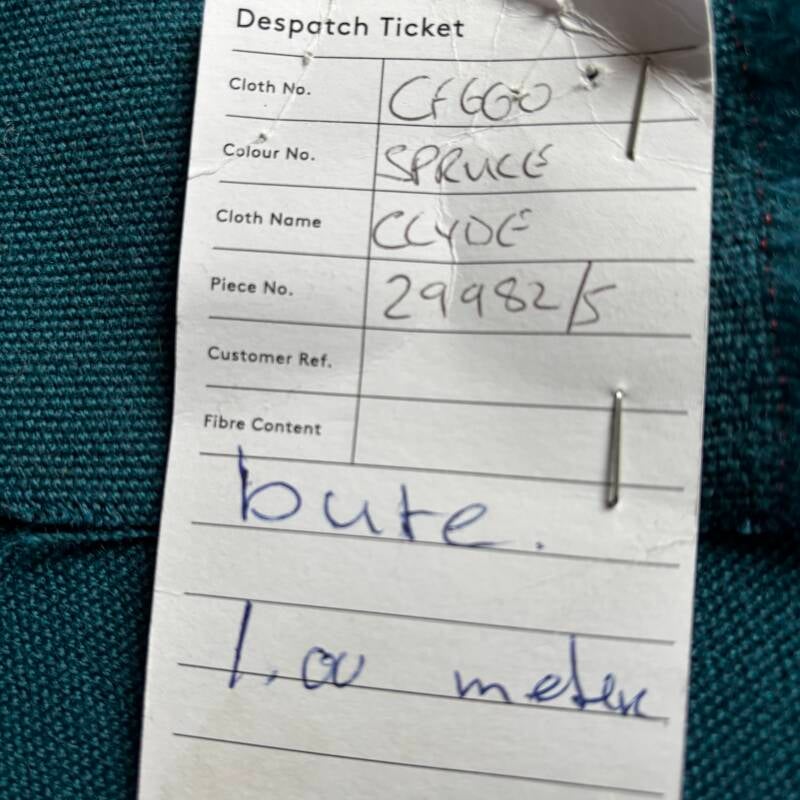 Despatch Ticket
Cloth No. CF660
Colour No. SPRUCE
Cloth Name CLYDE
Piece No. 29982/5
Customer Ref.
Fibre Content
bute.
1.00 meter